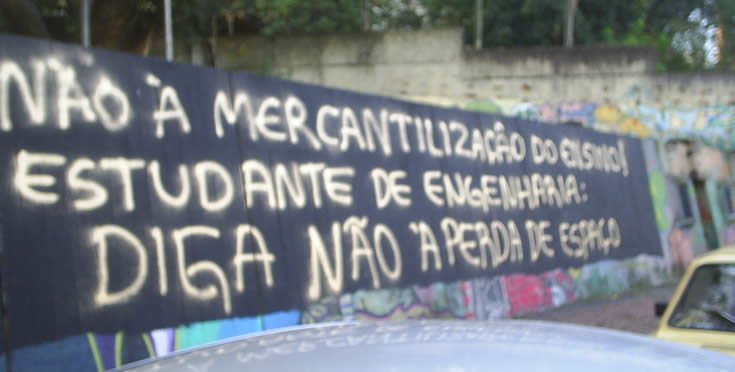 NÃO À MERCANTILIZAÇÃO DO ENSINO!
ESTUDANTE DE ENGENHARIA:
DIGA NÃO À PERDA DE ESPAÇO